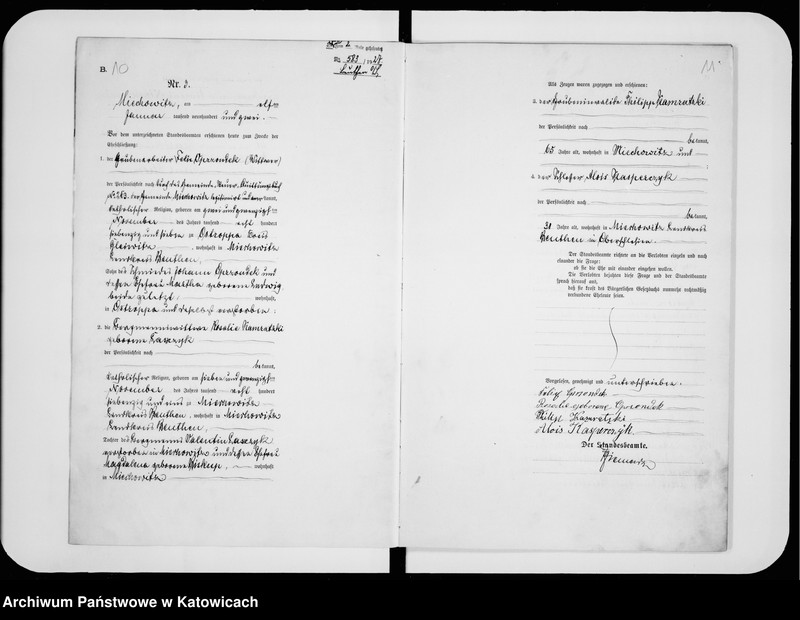 B.
10
Nr. 3.
Miechowitz, am elften
Januar tausend neunhundert und zwei.
Vor dem unterzeichneten Standesbeamten erschienen heute zum Zwecke der
Eheschließung:
1. der Grubenarbeiter Felix (Wittwer)
der Persönlichkeit nach
kannt,
katholischer Religion, geboren am zwei und zwanzigsten
November des Jahres tausend acht hundert
siebenzig und sieben zu Ostroppa Kreis
Gleiwitz, wohnhaft in Miechowitz
Landkreis Beuthen,
Sohn des Schmiedes Johann und
dessen Ehefrau Martha geborene Ludwig
beide zuletzt wohnhaft,
in Ostroppa und daselbst verstorben.
2. die Bergmannwittwe Rosalie Kamratzki
geborene Kasczyk
der Persönlichkeit nach
bekannt,
katholischer Religion, geboren am sieben und zwanzigsten
November des Jahres tausend acht hundert
siebenzig und zu Miechowitz
Landkreis Beuthen, wohnhaft in Miechowitz
Landkreis Beuthen,
Tochter des Bergmanns Valentin Kasczyk
verstorben in Miechowitz und dessen Ehefrau
Magdalena geborene Biskup, wohnhaft
in Miechowitz
11
Als Zeugen waren zugezogen und erschienen:
3. der Grubeninvalide Philipp Kamratzki
der Persönlichkeit nach
bekannt,
65 Jahre alt, wohnhaft in Miechowitz und
4. der Schlosser Alois Kasperczyk
der Persönlichkeit nach
bekannt,
Jahre alt, wohnhaft in Miechowitz Landkreis
Beuthen in Oberschlesien.
Der Standesbeamte richtete an die Verlobten einzeln und nach
einander die Frage:
ob sie die Ehe mit einander eingehen wollen.
Die Verlobten bejahten diese Frage und der Standesbeamte
sprach hierauf aus,
daß sie kraft des Bürgerlichen Gesetzbuchs nunmehr rechtmäßig
verbundene Eheleute seien.
Vorgelesen, genehmigt und unterschrieben.
Rosalie geborene
Alois Kasperczyk.
Der Standesbeamte.
Archiwum Państwowe w Katowicach